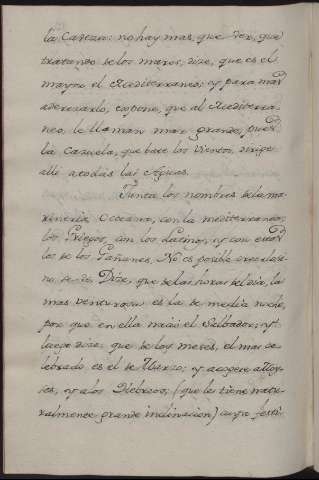 la Cabeza: no hay mas, que ver, que
tratando de los mares, dize, que es el
mayor el Mediterraneo; y para mas
aderezarlo, expone, que al Mediterra-
neo, le llaman mar grande, pues
la Cazuela, que bate los vientos, dirige
alli a todas las Aguas.
Junta los nombres de la ma-
rineria Occeana, con la mediterranea;
los Griegos, con los Latinos, y con estos
los de los Gañanes. No es posible creerlo si
no se vé. Dize, que de las horas del dia, la
mas venturosa es la de media noche,
por que en ella nació el Salvador; y
luego dize: que de los meses, el mas ce-
lebrado es el de Marzo; y acogere alloy-
es, y a los Hebreos; (que le tiene natu-
ralmente grande inclinacion) cuya festi-